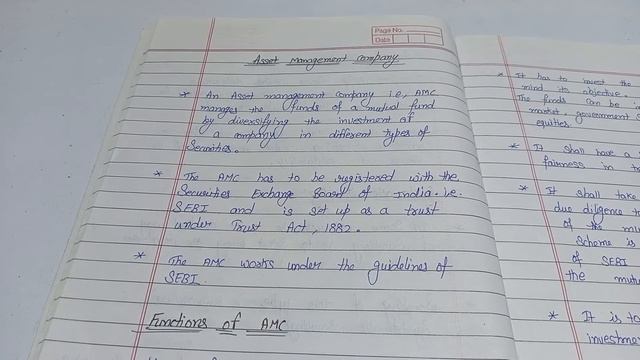 Page No.
Date
Asset management company
* An Asset management company i.e, AMC
manages the funds of a mutual fund
by diversifying the investment of
a company in different types of
Securities.
* The AMC has to be registered with the
Securities Exchange Board of India. i.e.
SEBI and is set up as a trust
under Trust Act, 1882.
* The AMC works under the guidelines of
SEBI.
Functions of AMC
* It has to invest the
mind to objective.
The funds can be i
market government s
equities.
* It shall have a
fairness in
* It shall take
due diligence
of the mu
Scheme is
of SEBI
the mutu
* It is to
investme